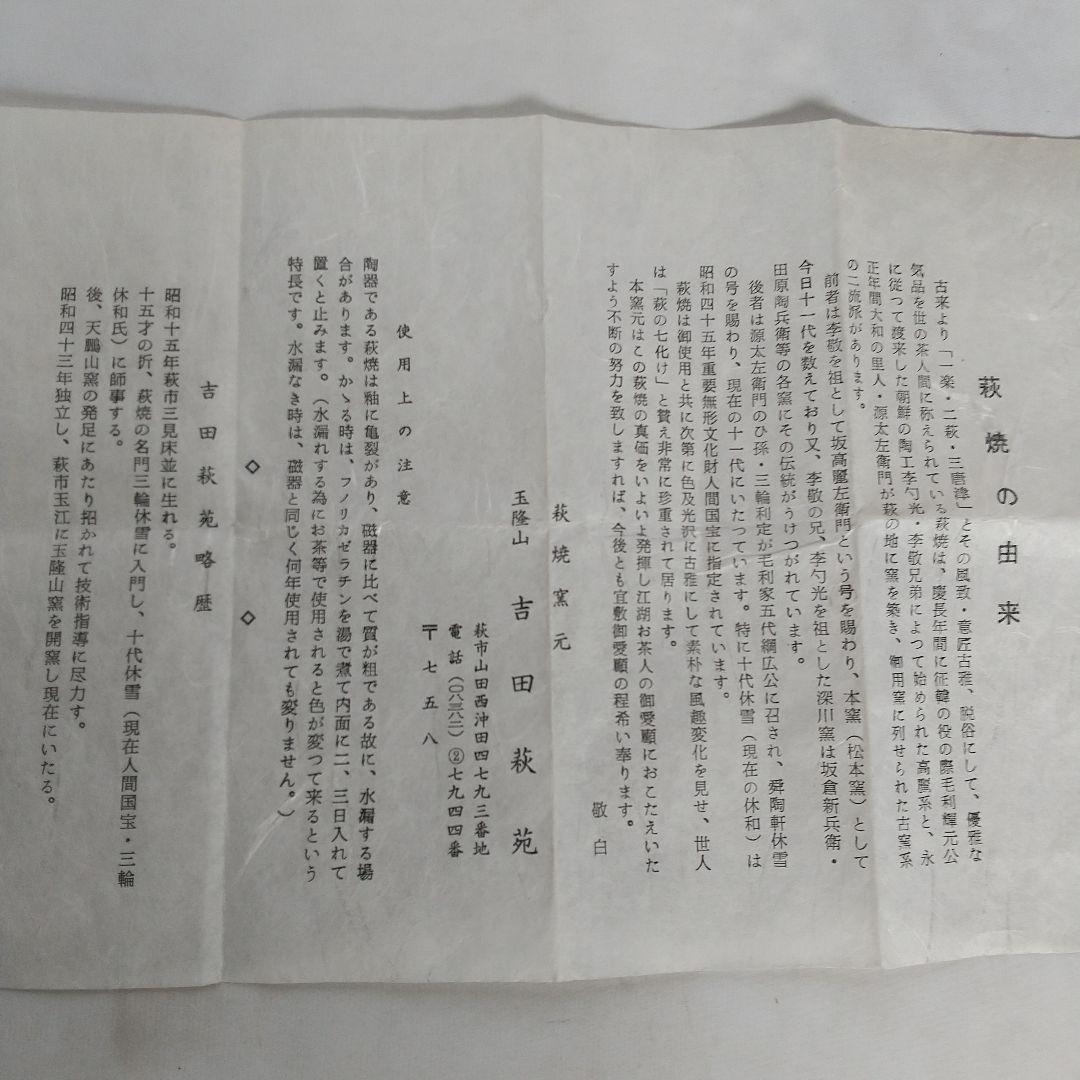 萩焼の由来
古来より「一楽・二萩・三唐津」とその風致・意匠古雅、脱俗にして、優雅な
気品を世の茶人間に称えられている萩焼は、慶長年間に征韓の役の際毛利輝元公
に従つて渡来した朝鮮の陶工李勺光・李敬兄弟によつて始められた高麗系と、永
正年間大和の里人・源太左衛門が萩の地に窯を築き、御用窯に列せられた古窯系
の二流派があります。
前者は李敬を祖として坂高麗左衛門という号を賜わり、本窯(松本窯)として
今日十一代を数えており又、李敬の兄、李勺光を祖とした深川窯は坂倉新兵衛・
田原陶兵衛等の各窯にその伝統がうけつがれています。
後者は源太左衛門のひ孫・三輪利定が毛利家五代綱広公に召され、舜陶軒休雪
の号を賜わり、現在の十一代にいたつています。特に十代休雪(現在の休和)は
昭和四十五年重要無形文化財人間国宝に指定されています。
萩焼は御使用と共に次第に色及光沢に古雅にして素朴な風趣変化を見せ、世人
は「萩の七化け」と賛え非常に珍重されて居ります。
本窯元はこの萩焼の真価をいよいよ発揮し江湖お茶人の御愛顧におこたえいた
すよう不断の努力を致しますれば、今後とも宜敷御愛顧の程希い奉ります。
敬白
萩焼窯元
玉隆山 吉田萩苑
萩市山田西沖田四七九三番地
電話(〇八三八二)②七九四四番
〒七五八
使用上の注意
陶器である萩焼は釉に亀裂があり、磁器に比べて質が粗である故に、水漏する場
合があります。かゝる時は、フノリカゼラチンを湯で煮て内面に二、三日入れて
置くと止みます。(水漏れする為にお茶等で使用されると色が変つて来るという
特長です。水漏なき時は、磁器と同じく何年使用されても変りません。)
◇ ◇
吉田萩苑略歴
昭和十五年萩市三見床並に生れる。
十五才の折、萩焼の名門三輪休雪に入門し、十代休雪(現在人間国宝・三輪
休和氏)に師事する。
後、天鵬山窯の発足にあたり招かれて技術指導に尽力す。
昭和四十三年独立し、萩市玉江に玉隆山窯を開窯し現在にいたる。